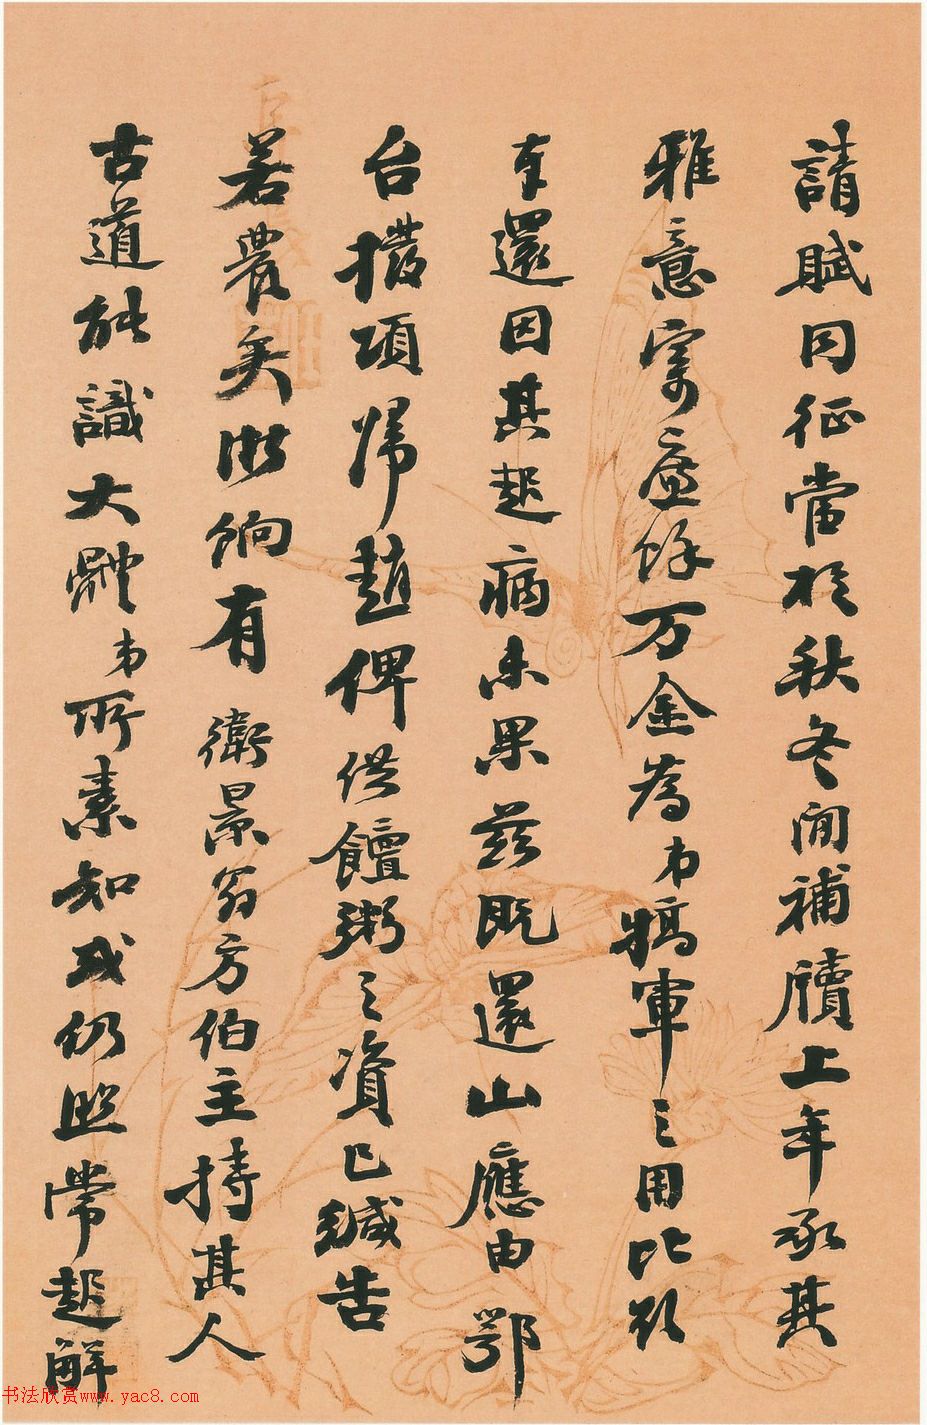 請賦同征當於秋冬間補牘上年承其
雅意寄廉餘万金為弟犒軍之用比欲
奉還因其起病未果茲既還山應由鄂
台撥項歸趙俾供饘粥之資已緘告
若農矣浙餉有衛景翁方伯主持其人
古道能識大體弟所素知或仍照常起解
书法欣赏www.yac8.com